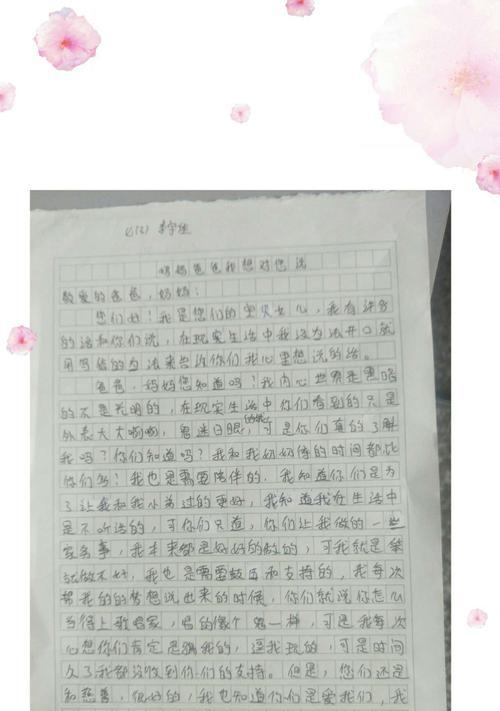 妈妈爸爸我想对您说
敬爱的爸爸,妈妈:
您们好!我是您们的宝贝女儿,我有许多
的话和你们说,在现实生活中我没办法开口就
用写信的方法来告诉你们我心里想说的话。
爸爸,妈妈您知道吗?我内心世界是黑暗
的不是光明的,在现实生活中你们看到的只是
外表大大咧咧,
的我 可是你们真的了解
我吗?你们知道吗?我和我奶奶待的时间都比
你们多!我也是需要陪伴的,我知道你们是为
了让我和我小弟过的更好,我知道我在生活中
是不听话的,可你们只道,你们让我做的一些
家务事,我本来都是好好的做的,可我就是笨
就做不好,我也是需要鼓励和支持的,我每次
帮我的的梦想说出来的时候,你们就说你怎么
当得上歌唱家,唱的像个鬼一样,可是我每次
心想你们肯定是骗我的,逗我玩的,可是时间
久了我都没收到你们的支持。但是,您们还是
和慈善,很好的,我也知道你们是爱我们,我